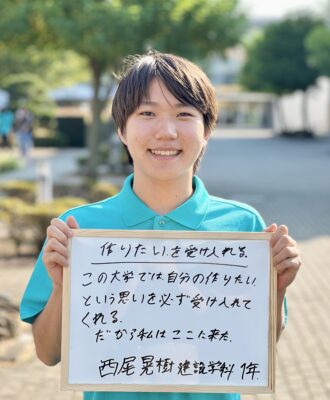 作りたいを受け入れる.
この大学では自分の作りたい
という思いを必ず受け入れて
くれる.
だから私はここに来た.
西尾晃樹 建設学科 1年.